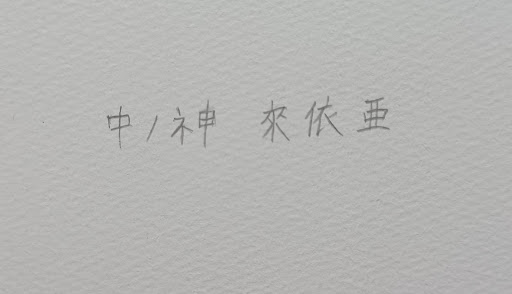 中ノ神 來依亜